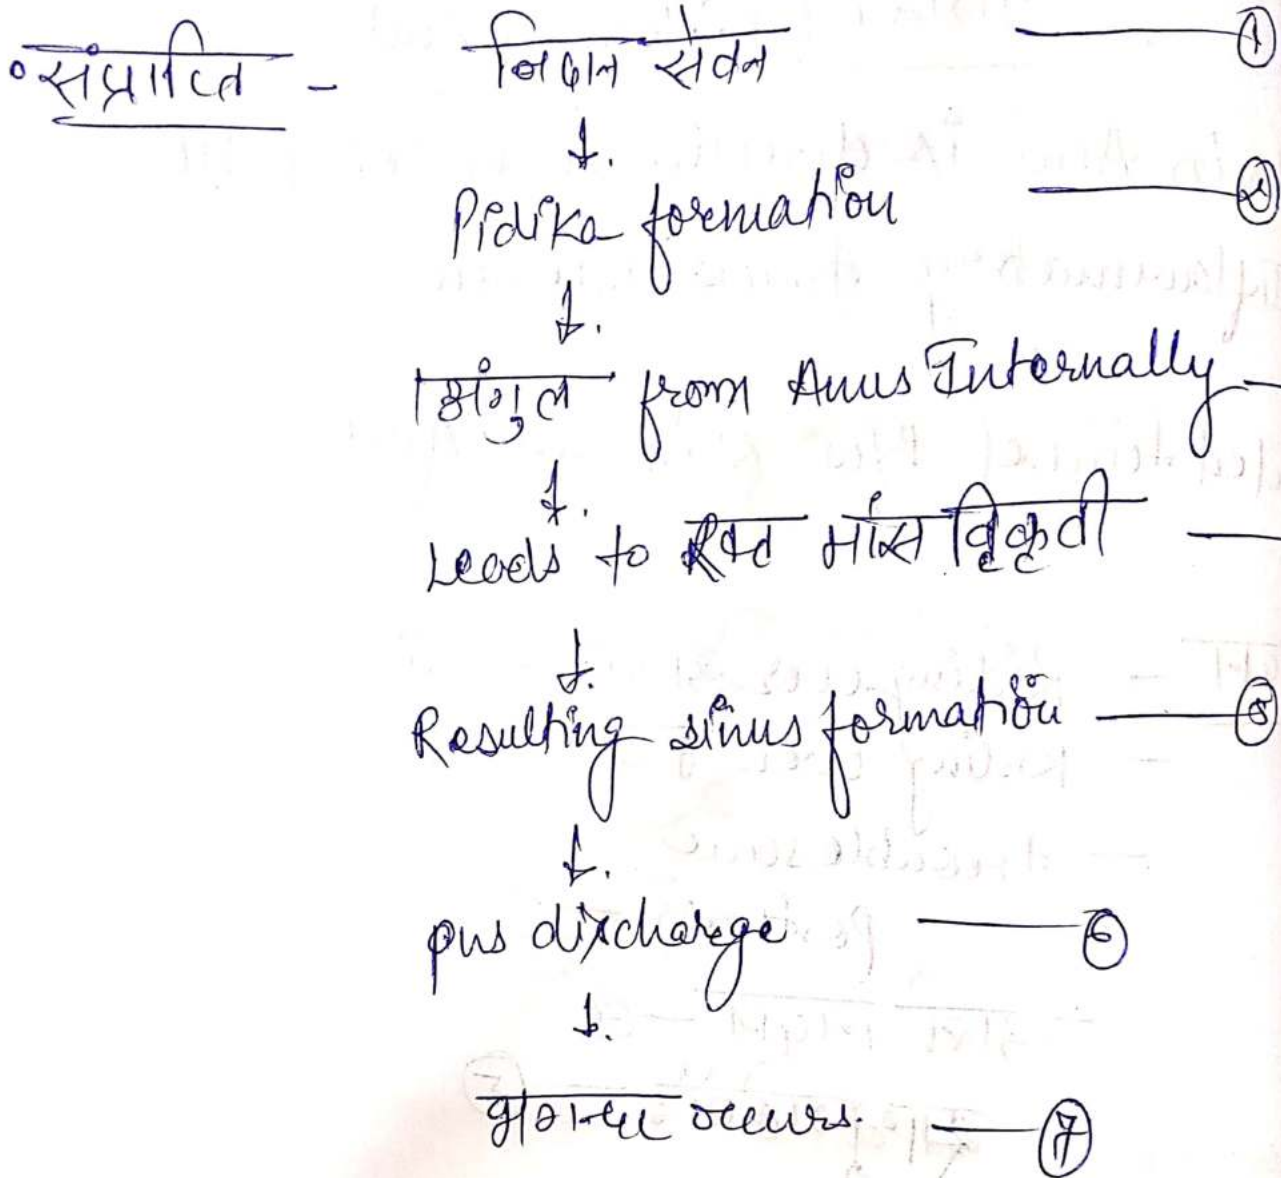 • संप्राप्ति - निदान सेवन —— ①
↓.
Pidika formation —— ②
↓.
from Anus Internally —
↓.
Leads to रक्त मांस विकृती —
↓.
Resulting sinus formation —— ⑤
↓.
pus discharge —— ⑥
↓.
occurs. —— ⑦